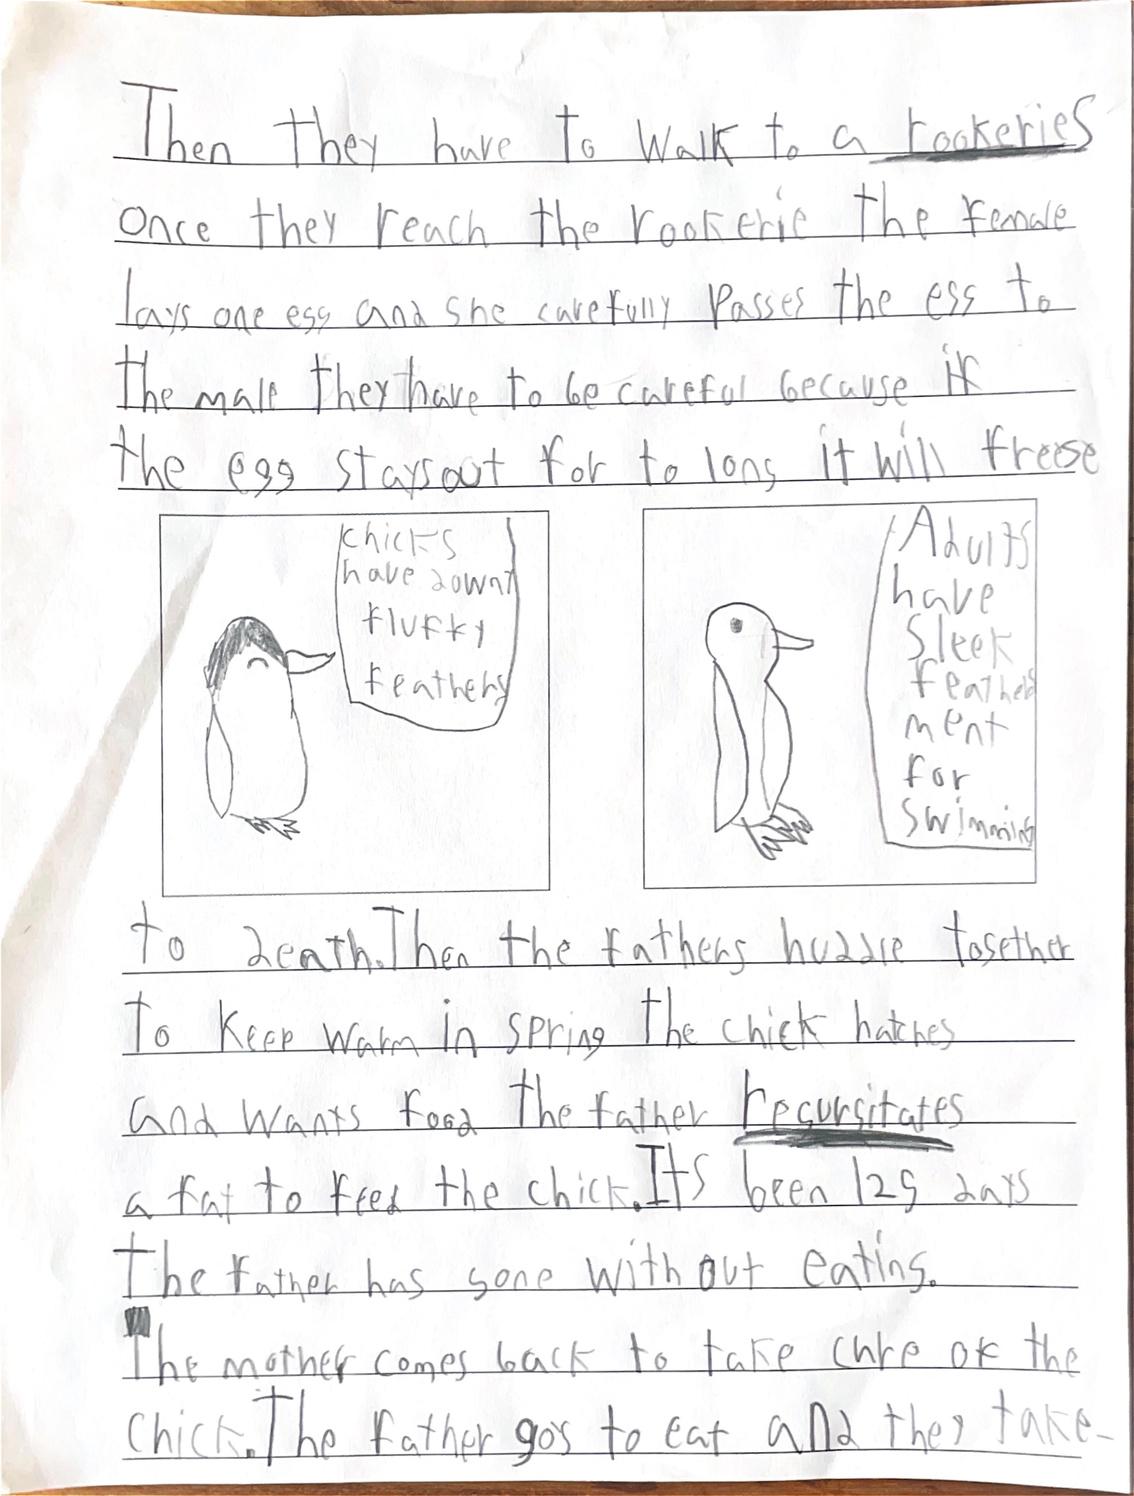 Then they have to walk to a rookeries
once they reach the rookerie the female
lays one egg and she carefully passes the egg to
the male they have to be careful because if
the egg stays out for to long it will freese
chicks
have downy
fluffy
feathers
Adults
have
sleek
feathers
ment
for
swimming
to death. Then the fathers huddle together
to keep warm in spring the chick hatches
and wants food the father regursitates
a fat to feed the chick. Its been 125 days
the father has gone without eating.
The mother comes back to take chre of the
chick. The father gos to eat and they take-